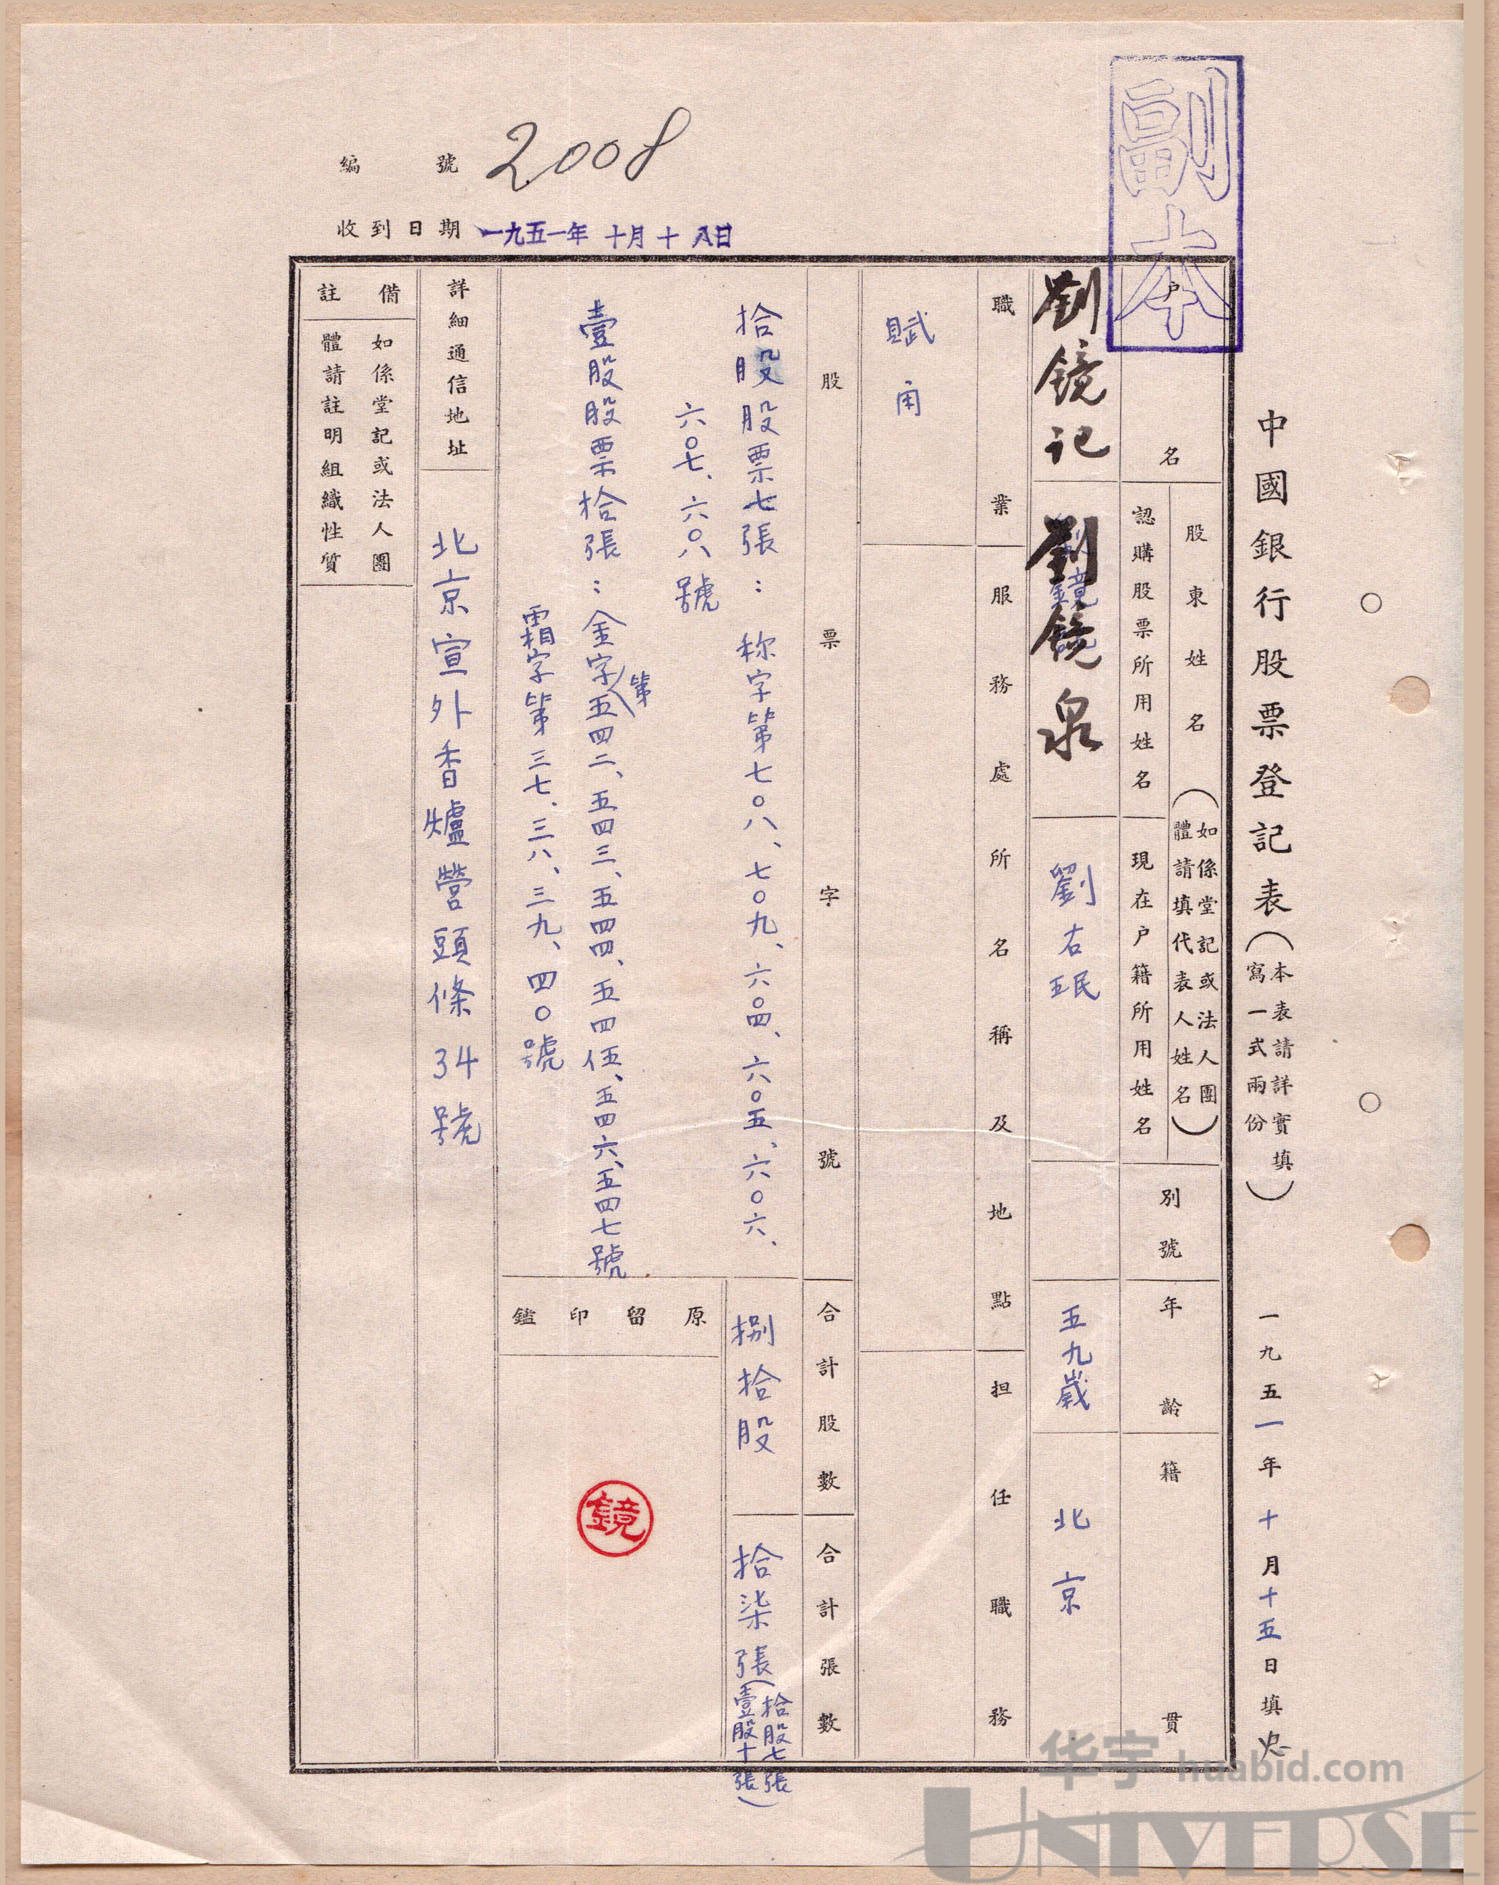 副本
編 號 2008
收到日期 一九五一年 十月 十 八日
中國銀行股票登記表（本表請詳實填寫一式兩份） 一九五一年十月十五日填
戶名
股東姓名（如係堂記或法人團體請填代表人姓名）
認購股票所用姓名
現在戶籍所用姓名
別號
年齡
籍貫
劉鏡記
劉鏡泉
劉右
五九歲
北京
職業
服務處所名稱及地點
担任職務
賦
股票字號
合計股數
合計張數
拾股股票七張：称字第七〇八、七〇九、六〇四、六〇五、六〇六、
六〇七、六〇八號
捌拾股
拾柒張（拾股七張
壹股十張）
壹股股票拾張：金字第五四二、五四三、五四四、五四伍、五四六、五四七號
霜字第三七、三八、三九、四〇號
原留印鑑
鏡
詳細通信地址
北京宣外香爐營頭條34號
備註
如係堂記或法人團
體請註明組織性質
华宇 huabid.com
UNIVERSE